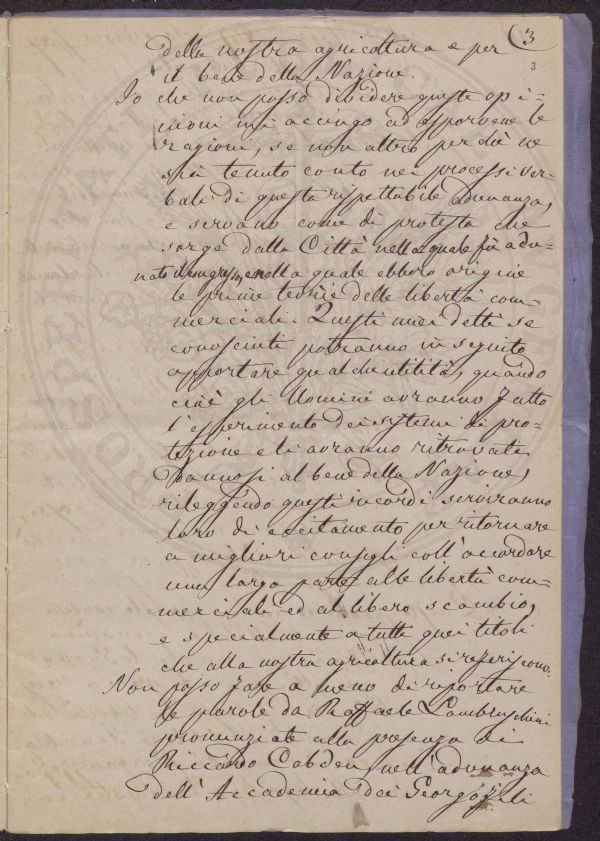 3
3
della nostra agricoltura e per
il bene della Nazione.
Io che non posso dividere queste opi-
nioni mi accingo ad esporvene le
ragioni, se non altro perchè ne
sia tenuto conto nei processi ver-
bali di questa rispettabile adunanza,
e servano come di protesta che
sorge dalla Città nella quale fù adu-
nato il congresso, e nella quale ebbero origine
le prime teorie delle libertà com-
merciali. Questi miei detti se
conosciuti potranno in seguito
apportare qualche utilità, quando
cioè gli Uomini avranno fatto
l'esperimento dei sistemi di pro-
tezione e li avranno ritrovati
Dannosi al bene della Nazione,
rileggendo questi ricordi serviranno
loro di eccitamento per ritornare
a migliori consigli coll'accordare
una larga parte alle libertà com-
merciali ed al libero scambio,
e specialmente a tutti quei titoli
che alla nostra agricoltura si referiscono.
Non posso fare a meno di riportare
le parole da Raffaele Lambruschini
pronunziate alla presenza di
Riccardo Cobden, nell'adunanza
dell'Accademia dei Georgofili